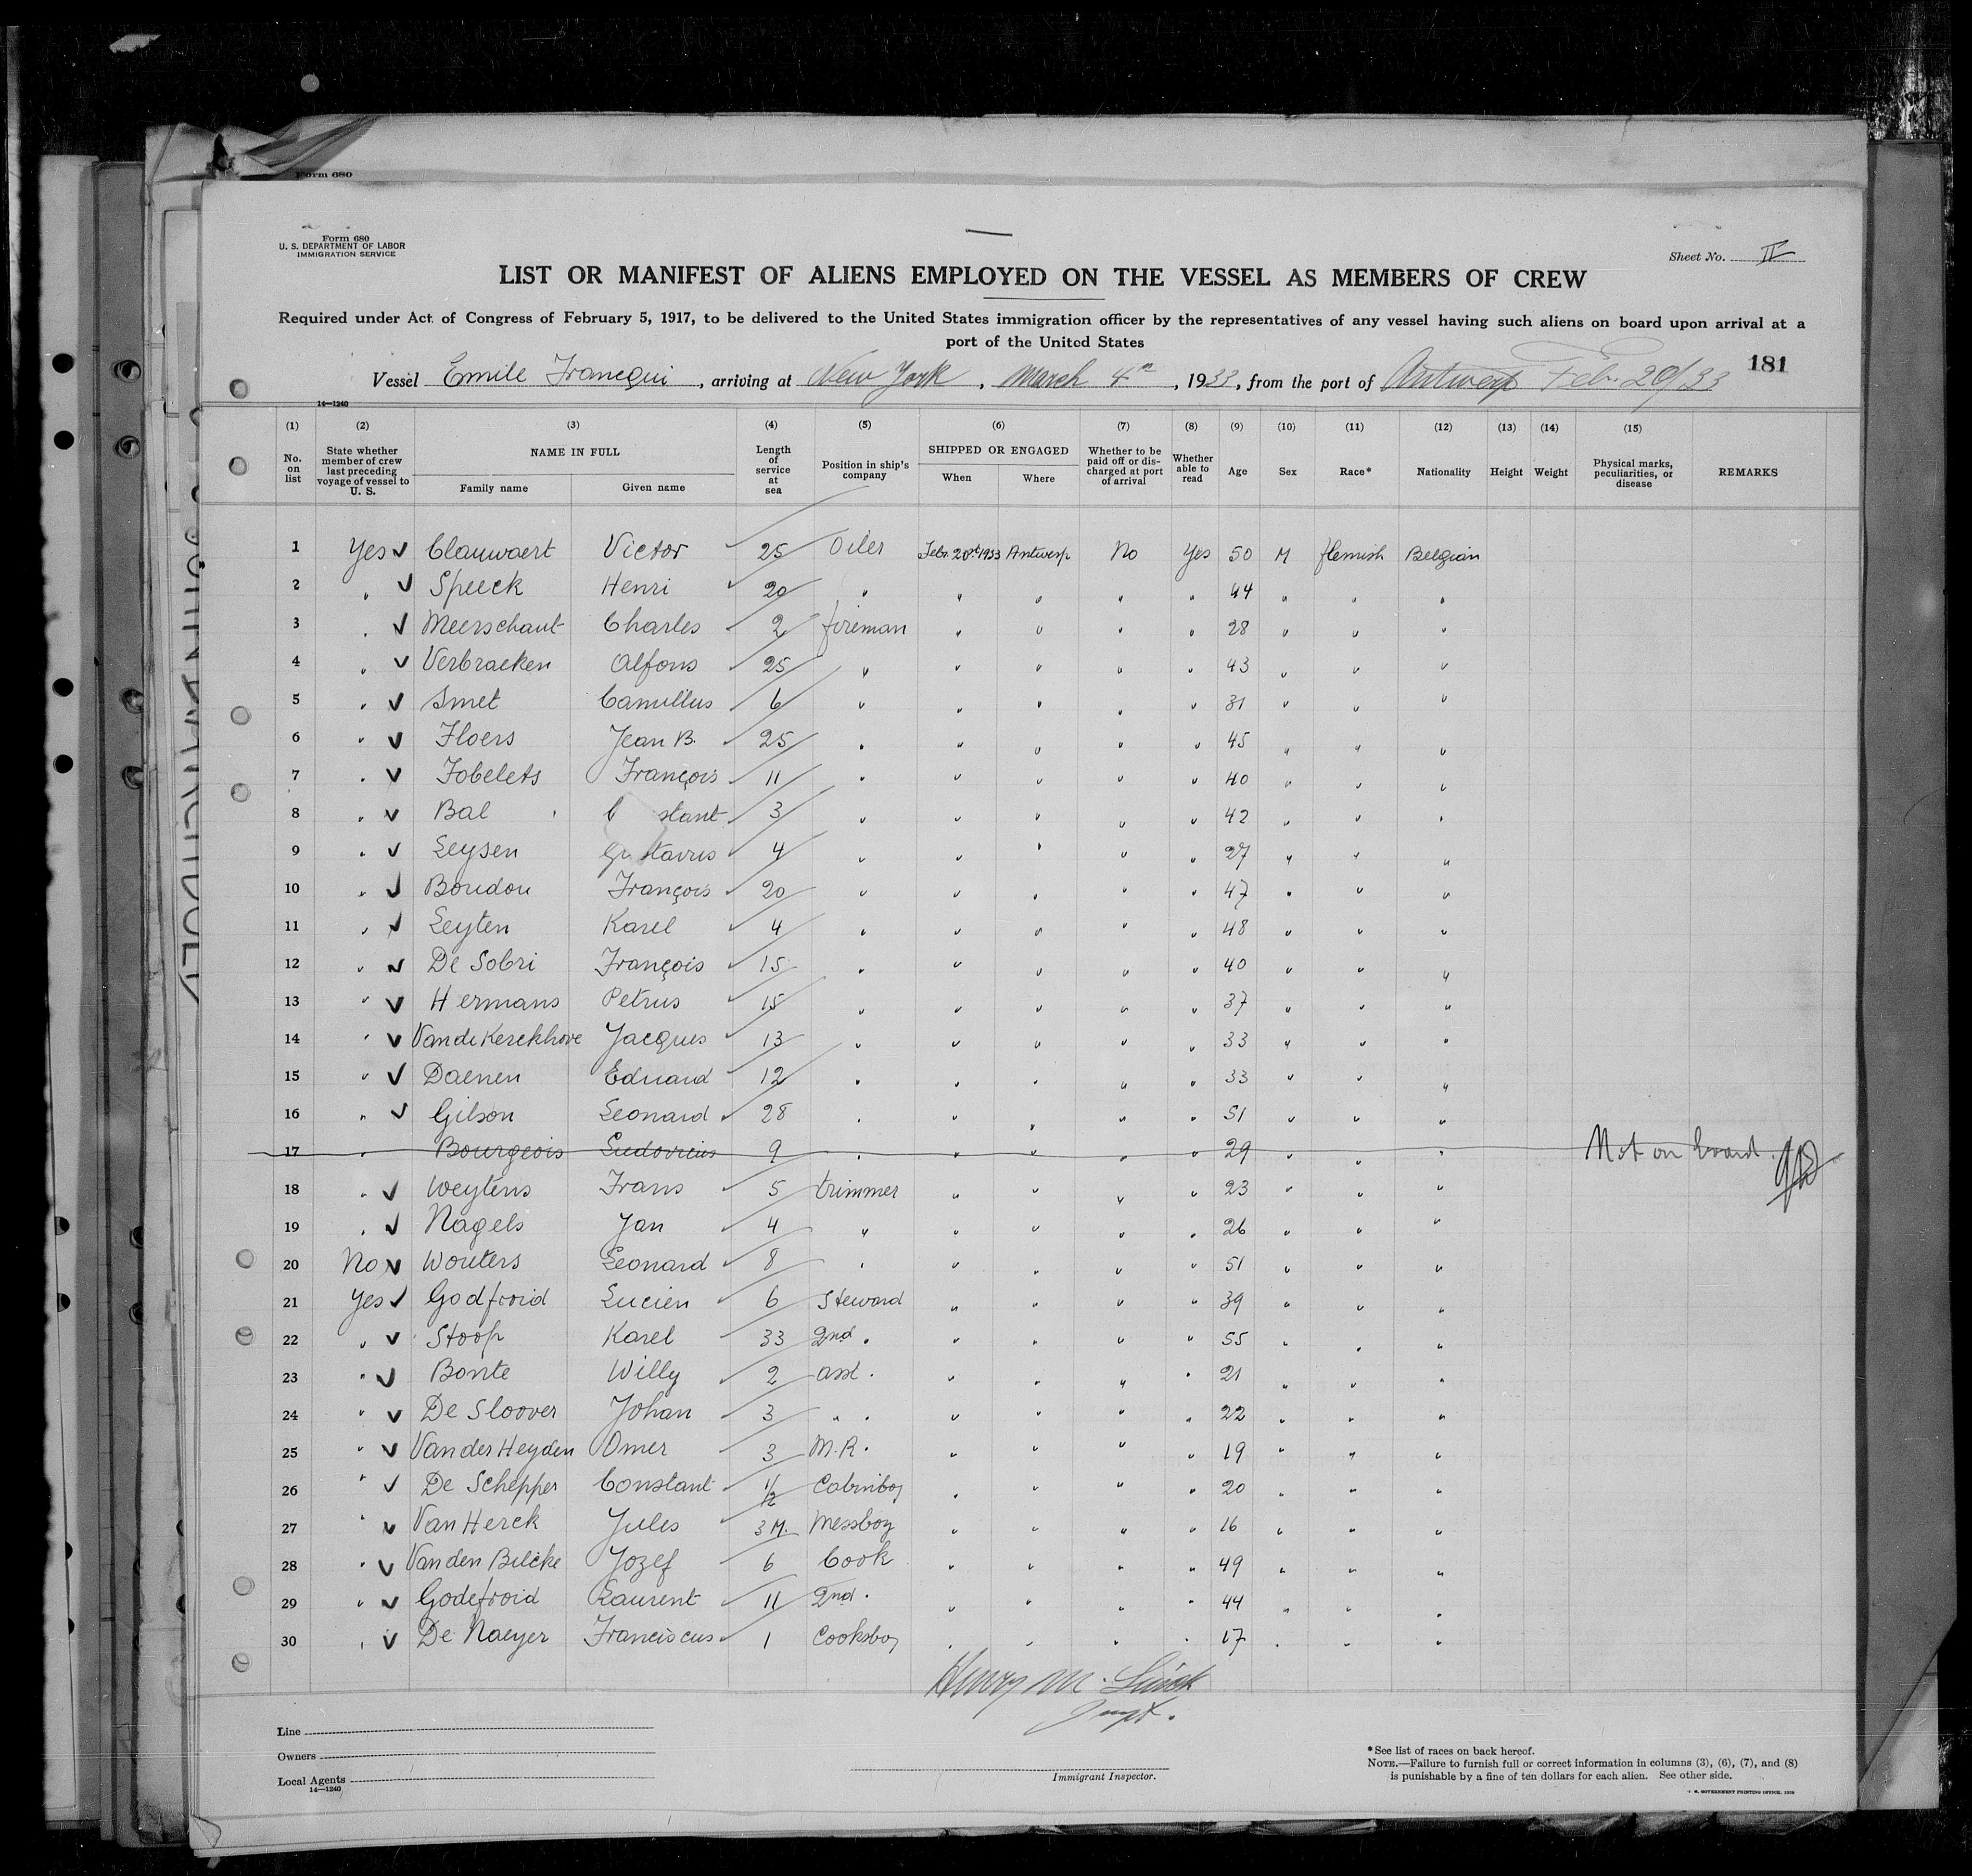 Form 680
Form 680
U. S. DEPARTMENT OF LABOR
IMMIGRATION SERVICE
Sheet No. II
LIST OR MANIFEST OF ALIENS EMPLOYED ON THE VESSEL AS MEMBERS OF CREW
Required under Act of Congress of February 5, 1917, to be delivered to the United States immigration officer by the representatives of any vessel having such aliens on board upon arrival at a
port of the United States
181
Vessel Emile Francqui, arriving at New York, March 4th, 1933, from the port of Antwerp Febr. 20/33
14—1240
(1) (2) (3) (4) (5) (6) (7) (8) (9) (10) (11) (12) (13) (14) (15)
No. on list State whether member of crew last preceding voyage of vessel to U. S. NAME IN FULL Family name Given name Length of service at sea Position in ship's company SHIPPED OR ENGAGED When Where Whether to be paid off or discharged at port of arrival Whether able to read Age Sex Race* Nationality Height Weight Physical marks, peculiarities, or disease REMARKS
1 Yes ✓ Clauwaert Victor 25 Oiler Febr. 20th 1933 Antwerp No Yes 50 M flemish Belgian
2 " ✓ Speeck Henri 20 " " " " " 44 " " "
3 " ✓ Meerschaut Charles 2 fireman " " " " 28 " " "
4 " ✓ Verbraeken Alfons 25 " " " " " 43 " " "
5 " ✓ Smet Camillus 6 " " " " " 31 " " "
6 " ✓ Floers Jean B. 25 " " " " " 45 " " "
7 " ✓ Fobelets François 11 " " " " " 40 " " "
8 " ✓ Bal C stant 3 " " " " " 42 " " "
9 " ✓ Leysen Gu stavus 4 " " " " " 27 " " "
10 " ✓ Boudou François 20 " " " " " 47 " " "
11 " ✓ Leyten Karel 4 " " " " " 48 " " "
12 " ✓ De Sobri François 15 " " " " " 40 " " "
13 " ✓ Hermans Petrus 15 " " " " " 37 " " "
14 " ✓ Van de Kerckhove Jacques 13 " " " " " 33 " " "
15 " ✓ Daenen Eduard 12 " " " " " 33 " " "
16 " ✓ Gilson Leonard 28 " " " " " 51 " " "
17 " Bourgeois Ludovicus 9 " " " " " 29 " " " Not on board.
18 " ✓ Weytens Frans 5 trimmer " " " " 23 " " "
19 " ✓ Nagels Jan 4 " " " " " 26 " " "
20 No ✓ Wouters Leonard 8 " " " " " 51 " " "
21 Yes ✓ Godfroid Lucien 6 Steward " " " " 39 " " "
22 " ✓ Stoop Karel 33 2nd " " " " " 55 " " "
23 " ✓ Bonte Willy 2 asst " " " " " 21 " " "
24 " ✓ De Sloover Johan 3 " " " " " " 22 " " "
25 " ✓ Van der Heyden Omer 3 M.R. " " " " 19 " " "
26 " ✓ De Schepper Constant 1/2 Cabinboy " " " " 20 " " "
27 " ✓ Van Herck Jules 3 M. Messboy " " " " 16 " " "
28 " ✓ Vanden Bilcke Jozef 6 Cook " " " " 49 " " "
29 " ✓ Godefroid Laurent 11 2nd " " " " " 44 " " "
30 " ✓ De Naeyer Franciscus 1 Cooksboy " " " " 17 " " "
Henry M.
Inspt.
Line
Owners
Local Agents
14—1240
Immigrant Inspector.
*See list of races on back hereof.
NOTE.—Failure to furnish full or correct information in columns (3), (6), (7), and (8)
is punishable by a fine of ten dollars for each alien. See other side.